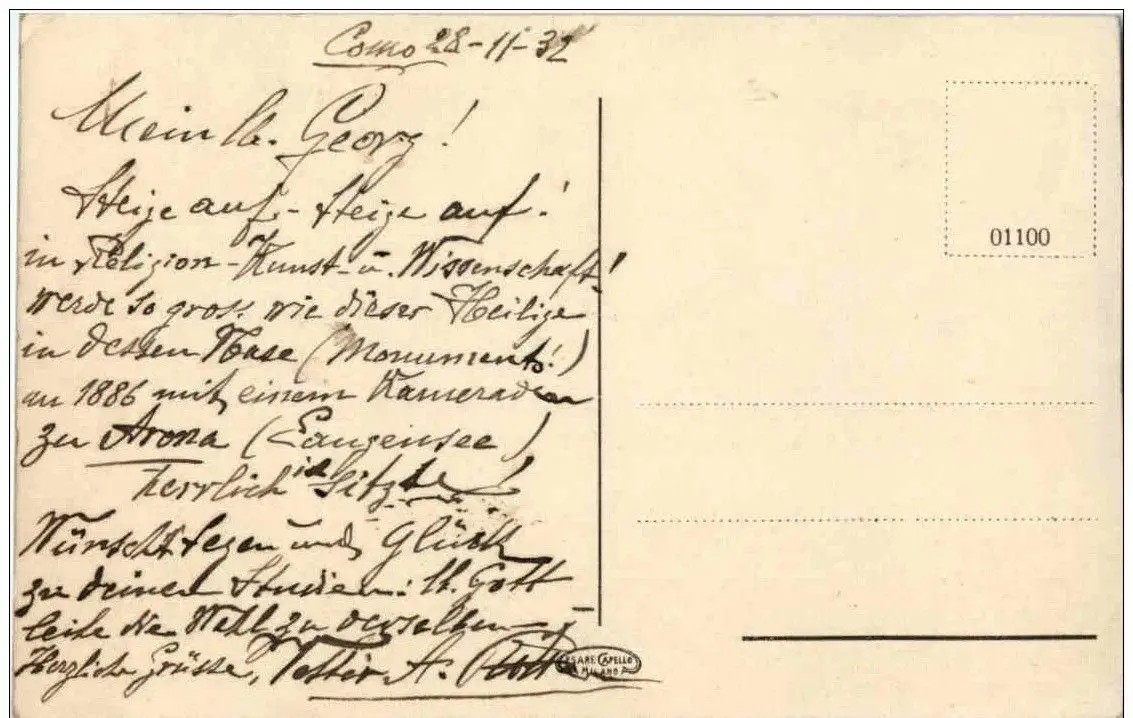 Como 28-11-32
Mein lb. Georg!
Steige auf - steige auf!
in Religion - Kunst - u. Wissenschaft!
werde so gross wie dieser Heilige
in dessen Nase (Monument!)
an 1886 mit einem Kameraden
zu Arona (Langensee)
herrlich ich sitzte!
Wünscht Segen und Glück
zu deinen Studien: lb. Gott
leite die Wahl zu derselben
Herzliche Grüsse, A.
01100
CESARE CAPELLO
MILANO